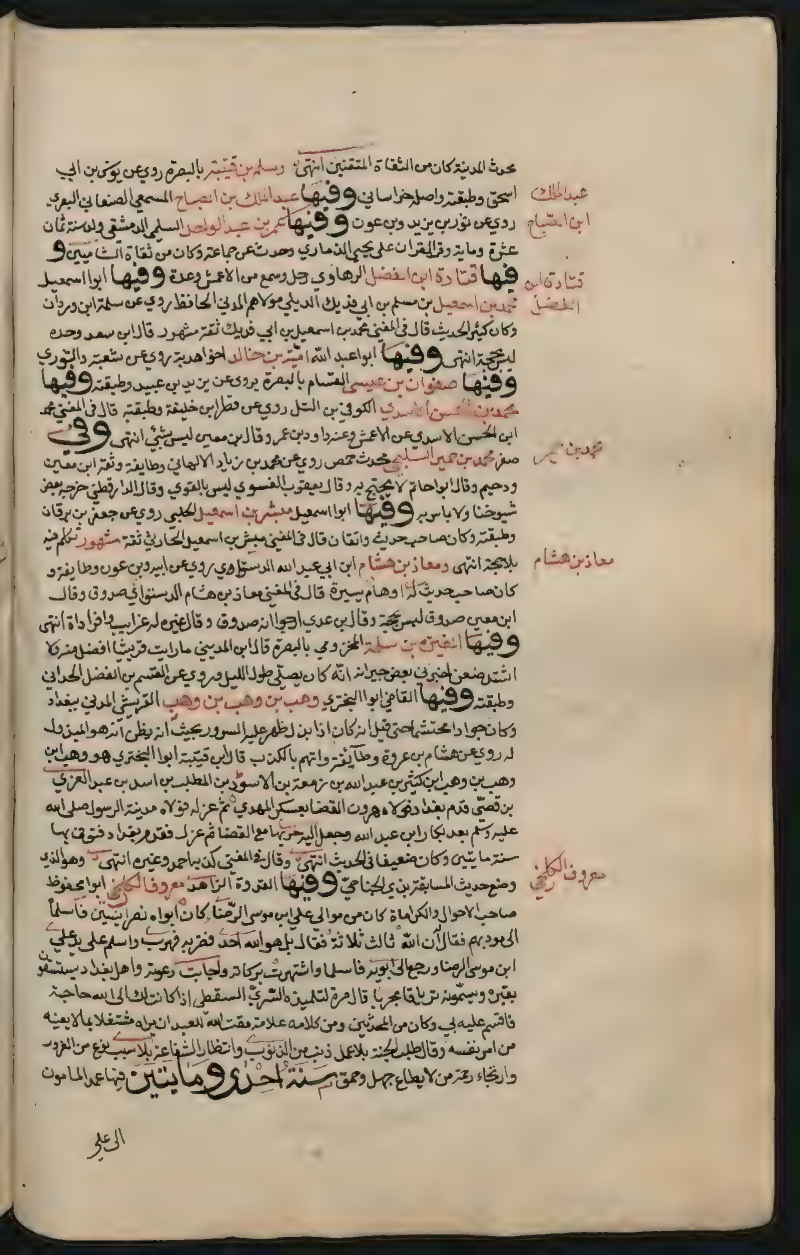 محدث المدينة كان من الثقاة المتقنين انتهى وسلم بن قتيبة بالبصرة روى عن يونس بن ابي
اسحق وطبقته واصله خراساني وفيها عبد الملك بن الصباح المسمعي الصنعاني البصري
عبد الملك
ابن الصباح
روى عن ثور بن يزيد وبن عون وفيها عمر بن عبد الواحد السلمي الدمشقي ولد سنة ثمان
عشرة وماية وقرا القران على يحيى الذماري وحدث عن جماعة وكان من ثقاة الشاميين و
فيها قتادة ابن الفضل الرهاوي رحل وسمع من الاعمش وعدة وفيها ابوا اسمعيل
قتادة ابن
الفضل
محمد بن اسمعيل بن مسلم بن ابي فديك الديلي مولاهم المدني الحافظ روى عن سلمة ابن وردان
وكان كثير الحديث قال في المغني محمد بن اسمعيل بن ابي فديك ثقة مشهور قال ابن سعد وحده
ليس بحجة انتهى وفيها ابو عبد الله امية بن خالد اخو هدبة روى عن شعبة والثوري
وفيها صفوان بن عيسى القسام بالبصرة يروى عن يزيد بن عبيد وطبقته وفيها
محمد بن الحسن الاسدي الكوفي بن التل روى عن فطر ابن خليفة وطبقته قال في المغني محمد
ابن الحسن الاسدي عن الاعمش وعنه داود بن عمر وقال بن معين ليس بشئ انتهى وفي
صفر محمد بن حمير السليحي محدث حمص روى عن محمد بن زياد الالهاني وطايفة وثقه ابن معين
محمد بن حمير
ودحيم وقال ابو حاتم لا يحتج به وقال يعقوب الفسوي ليس بالقوي وقال الدارقطني خرجه بعض
شيوخنا ولا باس به وفيها ابوا اسمعيل مبشر بن اسمعيل الحلبي روى عن جعفر بن برقان
وطبقته وكان صاحب حديث واتقان قال في المغني مبشر بن اسمعيل الحارثي ثقة مشهور تكلم فيه
بلا حجة انتهى ومعاذ بن هشام ابن ابي عبد الله الدستواي روى عن ابيه وبن عون وطايفة و
معاذ بن هشام
كان صاحب حديث له اوهام يسيرة قال في المغني معاذ بن هشام الدستوائي صدوق وقال
ابن معين صدوق ليس بحجة وقال بن عدي ارجوا انه صدوق وقال غيره له غرايب وافرادا انتهى
وفيها المغيرة بن سلمة المخزومي بالبصرة قال ابن المديني ما رايت قرشيا افضل منه ولا
اشد تواضعا اخبرني بعض جيرانه انه كان يصلي طول الليل وروى عن القسم بن الفضل الحداني
وطبقته وفيها القاضي ابوا البختري وهب بن وهب بن وهب القرشي المدني ببغداد
وكان جوادا محتشما حتى قيل انه كان اذا بذل ظهر عليه السرور بحيث انه يظن انه هو المبذول
له روى عن هشام بن عروة وطائفة واتهم بالكذب قال ابن قتيبة ابوا البختري هو وهب ابن
وهب بن وهب ابن كثير بن عبد الله بن زمعة بن الاسود بن المطلب بن اسد بن عبد العزى
بن قصي قدم بغداد فولاه هرون القضا بعسكر المهدي ثم عزله فولاه مدينة الرسول صلى الله
عليه وسلم بعد بكار ابن عبد الله وجعل اليه حربها مع القضا ثم عزله فقدم بغداد فتوفى بها
سنة مايتين وكان ضعيفا في الحديث انتهى وقال في المغني كذبه احمد وغيره انتهى وهو الذي
وضع حديث المسابقة بذي الجناح وفيها القدوة الزاهد معروف الكرخي ابو محفوظ
معروف الكرخي
صاحب الاحوال والكرامات كان من موالي علي ابن موسى الرضا كان ابواه نصرانيين فاسلماه
الى مودبهم فقال ان الله ثالث ثلاثة فقال بل هو الله احد فضربه فهرب واسلم على يد علي
ابن موسى الرضا ورجع الى ابويه فاسلما واشتهرت بركاته واجابت دعوته واهل بغداد يستسقون
بقبره ويسمونه ترياقا مجربا قال مرة لتلميذه السري السقطي اذا كانت لك الى الله حاجة
فاقسم عليه بي وكان من المحدثين ومن كلامه علامة مقت الله للعبد ان يراه مشتغلا بما لا يعنيه
من امر نفسه وقال طلب الجنة بلا عمل ذنب من الذنوب وانتظار الشفاعة بلا سبب نوع من الغرور
وارتجاء رحمة من لا يطاع جهل وحمق سنة احدى ومايتين فيها عمد المامون
الى علي